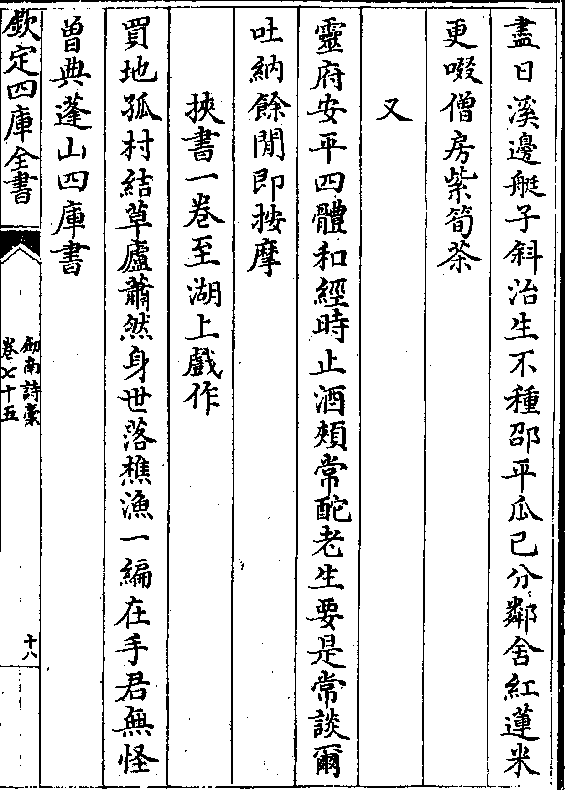 盡日溪邊艇子斜治生不種邵平瓜已分鄰舍紅蓮米
更啜僧房紫筍茶
又
靈府安平四體和經時止酒頰常酡老生要是常談爾
吐納餘閒即按摩
挾書一卷至湖上戲作
買地孤村結草廬蕭然身世落樵漁一編在手君無怪
曽典蓬山四庫書
欽定四庫全書
劒南詩稾
卷七十五
十八